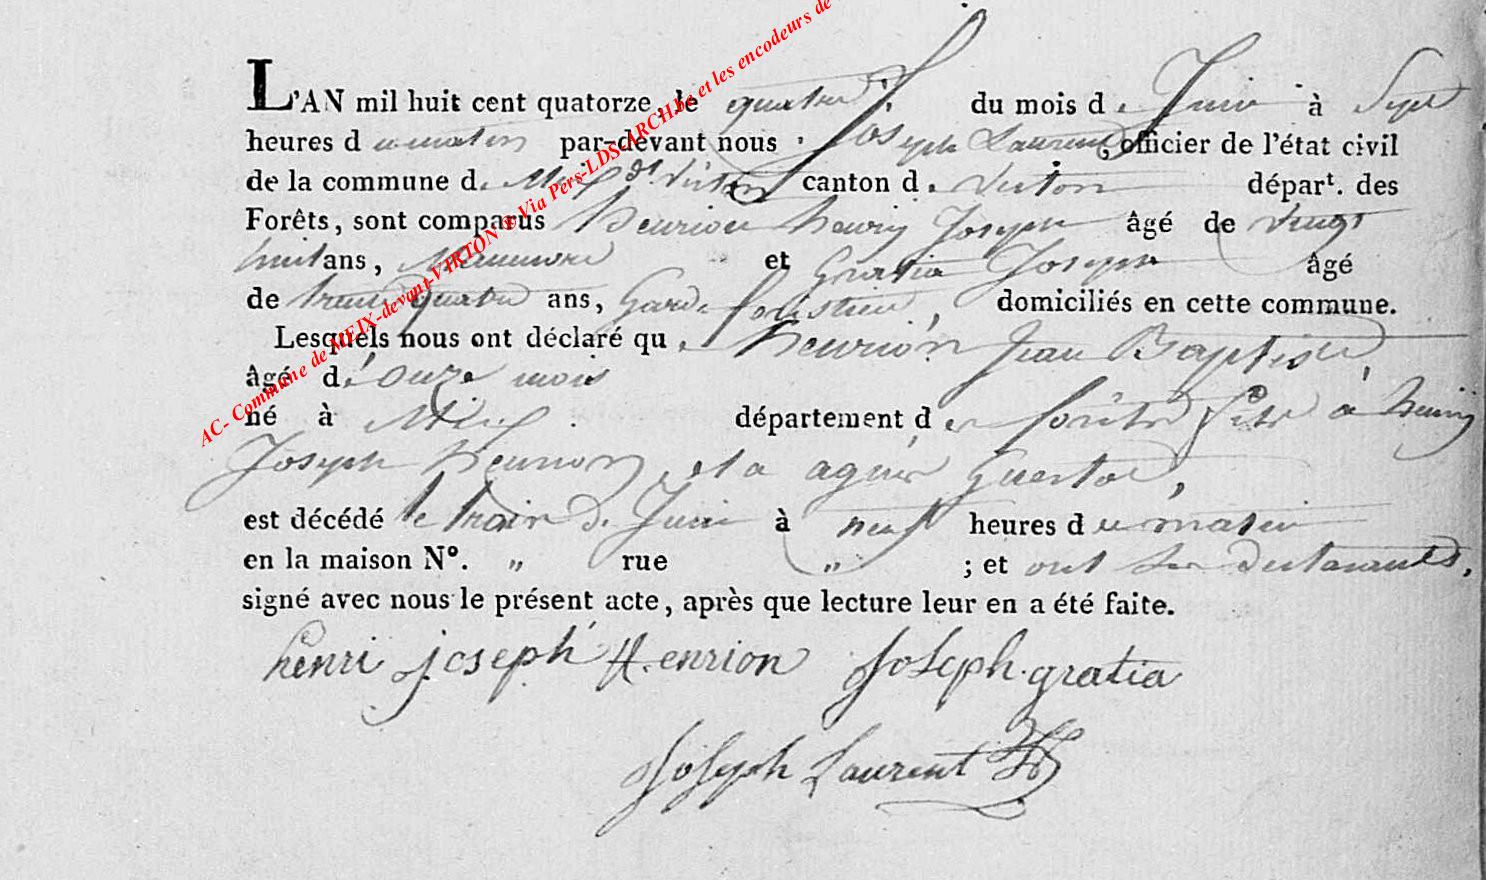 L'AN mil huit cent quatorze, le quatre du mois de Juin à Sept
heures du matin par-devant nous Joseph Laurent officier de l'état civil
de la commune de Meix dt Virton canton de Virton départ. des
Forêts, sont comparus henrion henry Joseph âgé de vingt
huit ans, Manuvre et Gratia Joseph âgé
de trente quatre ans, Garde forestier, domiciliés en cette commune.
Lesquels nous ont déclaré que henrion Jean Baptiste,
âgé de onze mois
né à Meix département des forêts fils à henry
Joseph henrion, et a agnes,
est décédé le trois de Juin à neuf heures du matin
en la maison N°. " rue " ; et ont les declarants,
signé avec nous le présent acte, après que lecture leur en a été faite.
henri joseph Henrion Joseph gratia
Joseph Laurent
AC- Commune de MEIX-devant-VIRTON © Via Pers-LDS-ARCH.be et les encodeurs de